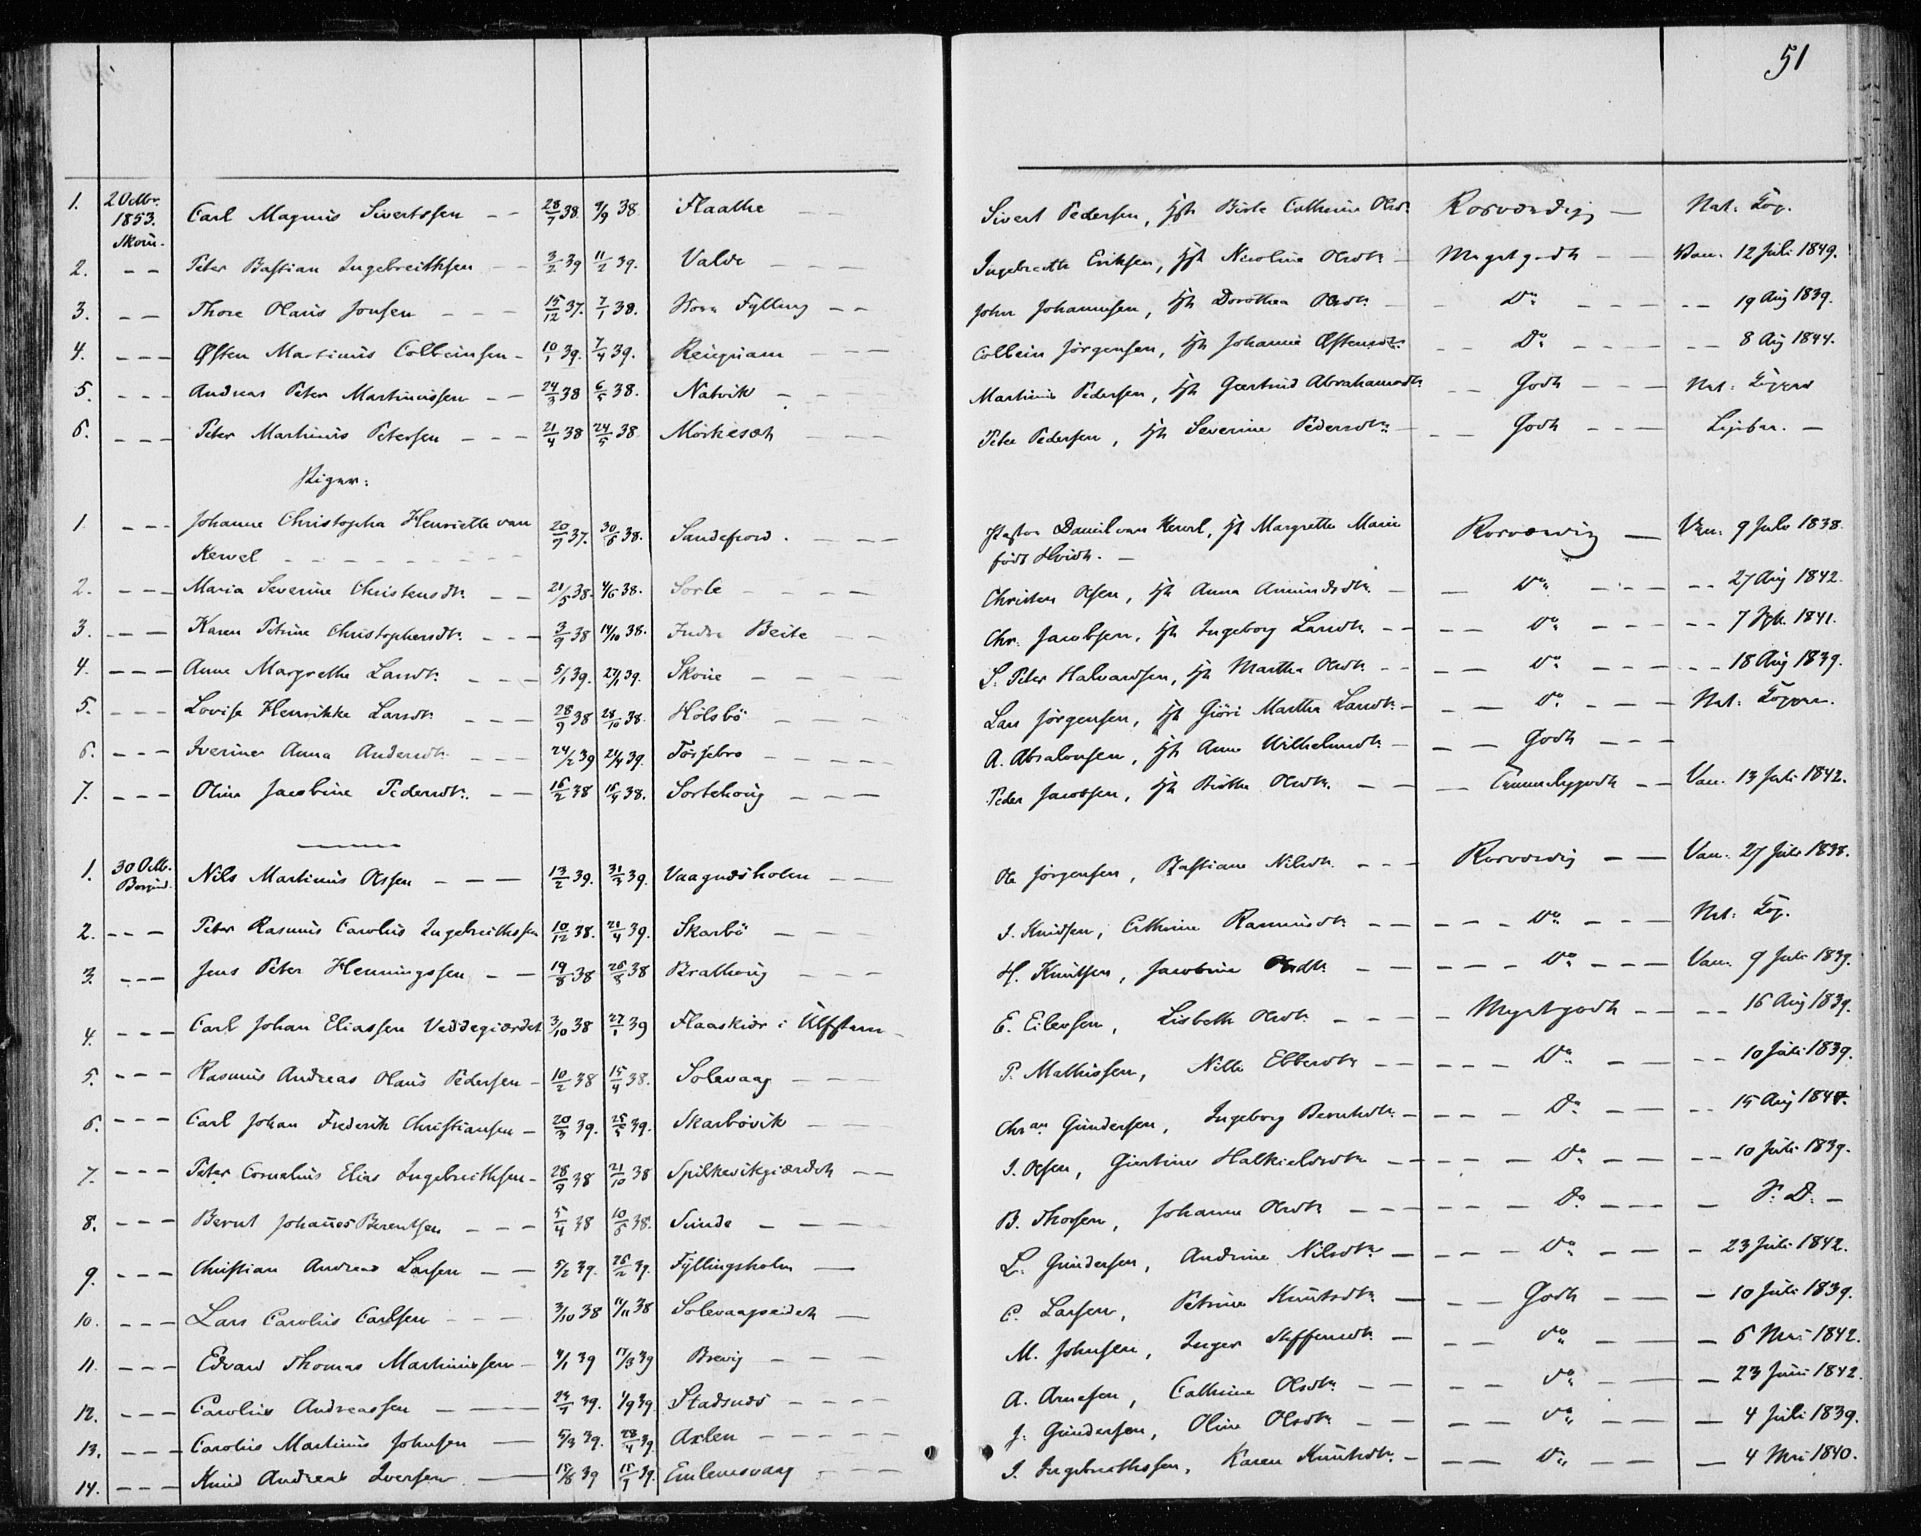 51
1. 2 Octbr. 1853. Skoue. Carl Magnus Sivertsen – – 28/7 38. 9/9 38. Flaathe – Sivert Pedersen, Hst Birte Cathrine Olsdt. Rosværdig – Nat: Kop.
2. – – Peter Bastian Ingebreithsen – – 3/2 39 11/2 39. Valde – – – Ingebreth Eriksen, Hst Nicoline Olsdt. – Megetgodt – – Van. 12 Juli 1849.
3. – – Thore Olaus Jonsen – – – 15/12 37. 7/1 38. Store Fylling – – John Johannesen, Hst Dorothea Olsdt. – Do – – – 19 Aug 1839.
4. – – – Østen Martinus Colbeinsen – 10/1 39. 7/4 39. Colbein Jørgensen, Hst Johanne Østensdt. – – Do – – – 8 Aug 1844.
5. – – – Andreas Peter Martinussen – – 24/3 38 6/5 38. Natvik – – Martinus Pedersen, Hst Gjertrud Abrahamsdt. – – Godt – – – Nat:
6. – – – Peter Martinus Petersen – – – 21/4 38 24/5 38. Mørkeseth – – – Peter Pedersen, Hst Severine Pedersdt. – – Godt – – –
Piger:
1. – – – Johanne Christopha Henriette van 20/9 37. 30/6 38. Sandefiord. – – – Pastor Daniel van Kervel, Hst Margrethe Marie Rosværdig – Van. 9 Julv 1838.
Kervel – – – født Hvidt. –
2. – – – Maria Severine Christensdt. – – 21/5 38. 4/6 38. Sorte – – – Christen Olsen, Hst Anna Amundsdt. – – Do – – – 27 Aug 1842.
3. – – – Karen Petrine Christophersdt. – – – 3/9 38 14/10 38. Indre Beite – – – Chr. Jacobsen, Hst Ingeborg Larsdt. – – Do – – – 7 Spt. 1841.
4. – – – Anne Margrethe Larsdt. – – – 5/1 39. 27/1 39. Skoue – – – L. Peter Halvardsen, Hst Martha Olsdt. – – Do – – – 18 Aug 1839.
5. – – – Lovise Henrikke Larsdt. – – – 28/9 38 28/10 38. Hølsbö – – – Lars Jørgensen, Hst Giöri Martha Larsdt. – – Do – – – Nat: Koppen.
6. – – – Iverine Anna Andersdt. – – – 24/2 39 21/4 39. A. Absalonsen, Hst Anne Wilhelmsdt. – – Godt – – –
7. – – – Oline Jacobine Pedersdt. – – 16/2 38 16/4 38. Sortehoug – – – Peder Jacobsen, Hst Birthe Olsdt. – – Van. 13 Juli 1842.
1. 30 Octb. Borgund. Nils Martinus Olsen – – – 13/2 39. 31/3 39. Vaagnæsholm – – Ole Jørgensen, Bastiane Nilsdt. – – – Rosværdig – – Van. 27 Juli 1838.
2. – – – Peter Rasmus Carolus Ingebreithssen 10/12 38. 21/4 39. Skarbö – – – I. Knudsen, Cathrine Rasmusdt. – – – Do – – – Nat: Kop.
3. – – – Jens Peter Henningssen – – 19/8 38 26/8 38 Brathoug – – – H. Knutsen, Jacobine Olsdt. – – – Do – – – Van. 9 Juli 1839.
4. – – – Carl Johan Eliassen Veddegiærdet 3/10 38 27/1 39 Flaaskiær i Ulfsten – E. Eilevsen, Lisbeth Olsdt. – – – Megetgodt – – – 16 Aug 1839.
5. – – – Rasmus Andreas Olaus Pedersen – 10/2 38 15/4 38. Solevaag – – – P. Mathissen, Nille Ebbesdt. – – – Do – – – 10 Juli 1839.
6. – – – Carl Johan Frederik Christiansen – 20/3 39. 25/5 39. Skarbövik – – – Chran Gundersen, Ingeborg Berntsdt. – – – Do – – – 15 Aug 1844.
7. – – – Peter Cornelius Elias Ingebreithsen – 28/9 38 21/10 38 Spilkevikgiærdet – – I. Olsen, Giertine Halkieldsdt. – – – Do – – – 10 Juli 1839.
8. – – – Bernt Johañes Berentsen – – – 5/4 38 10/5 38. Sunde – – – B. Thorsen, Johanne Olsdt. – – – Do – – – S. D. –
9. – – – Christian Andreas Larsen – – 5/2 39. 26/2 39. Fyllingsholm – L. Gundersen, Andrine Nilsdt. – – – Do – – – 23 Juli 1842.
10. – – – Lars Carolus Carlsen – – – 3/10 38 11/11 38 Solevaagseidet – C. Larsen, Petrine Knutsdt. – – – Godt – – – 10 Juli 1839.
11. – – – Edvard Thomas Martinussen – 4/1 39 17/3 39 Brevig – – – M. Johnsen, Inger Steffensdt. – – – Do – – – 6 Mai 1842.
12. – – – Carolus Andreassen – – – 24/7 39. 1/9 39. Stadsnæs – – – A. Arnesen, Cathrine Olsdt. – – – Do – – – 23 Juni 1842.
13. – – – Carolus Martinus Johnsen – 5/3 39. 28/4 39. Axlen – – – J. Gundersen, Oline Olsdt. – – – Do – – – 4 Juli 1839.
14. – – – Knud Andreas Iversen – 15/8 39 15/9 39. Emlemsvaag – – – I. Ingebrethssen, Karen Knutsdt. – – – Do – – – 4 Mai 1840.